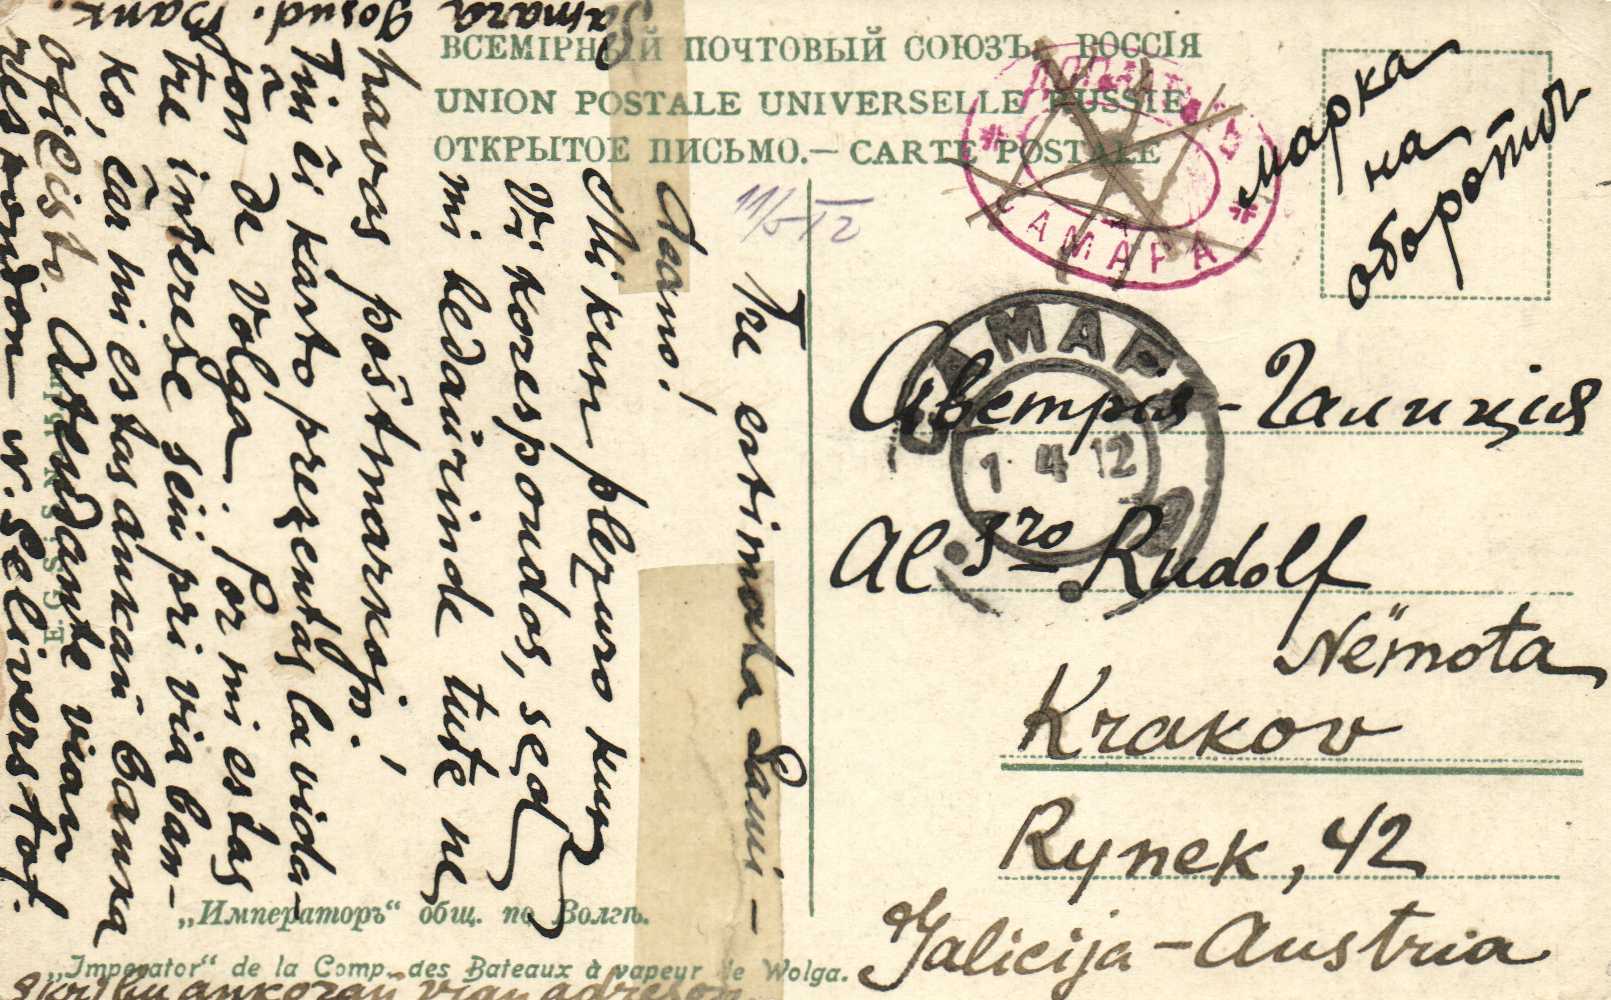 ВСЕМІРНЫЙ ПОЧТОВЫЙ СОЮЗЪ. РОССІЯ
UNION POSTALE UNIVERSELLE RUSSIE
ОТКРЫТОЕ ПИСЬМО.— CARTE POSTALE
САМАРА
марка
на
оборотѣ
САМАРА
1 4 12
Австрія - Галиція
Al Sro Rudolf
Nëmota
Krakov
Rynek, 42
Galicija - Austria
Tre estimata Sami-
deano!
Mi kun plezuro kun
Vi korespondos, sed
mi bedaŭrinde tute ne
havas poŝtmarkojn,
Tiu ĉi karto prezentas la vida-
ĵon de Volga. Por mi estas
tre interese scii pri via ban-
ko, ĉar mi estas ankaŭ banka
oficisto. Atendante vian
respondon V. Seliverstof.
Samara Gosud. Bank.
„Императоръ“ общ. по Волгѣ.
„Imperator“ de la Comp. des Bateaux à vapeur de Wolga.
skribu ankoraŭ vian adreson